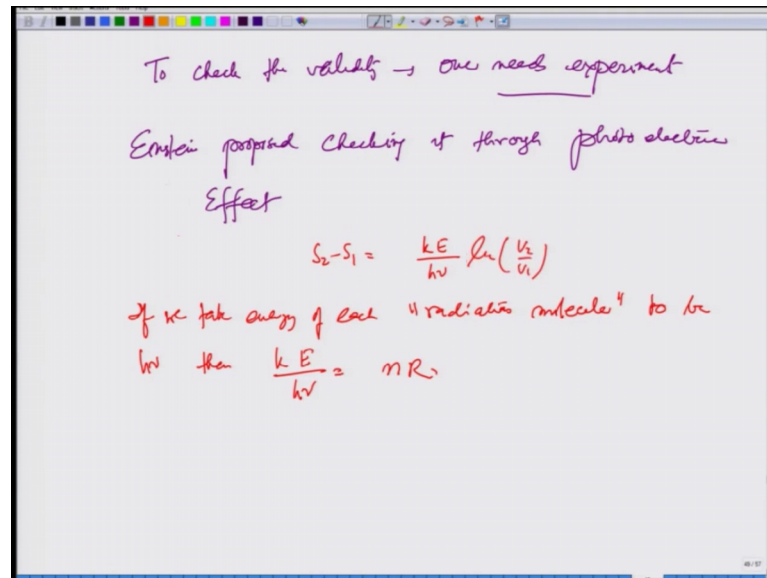 To check the validity → one needs experiment
Einstein proposed checking it through photoelectric
Effect
S₂-S₁ = kE/hν ln(V₂/V₁)
If we take energy of each "radiation molecule" to be
hν then kE/hν = nR,
49/57